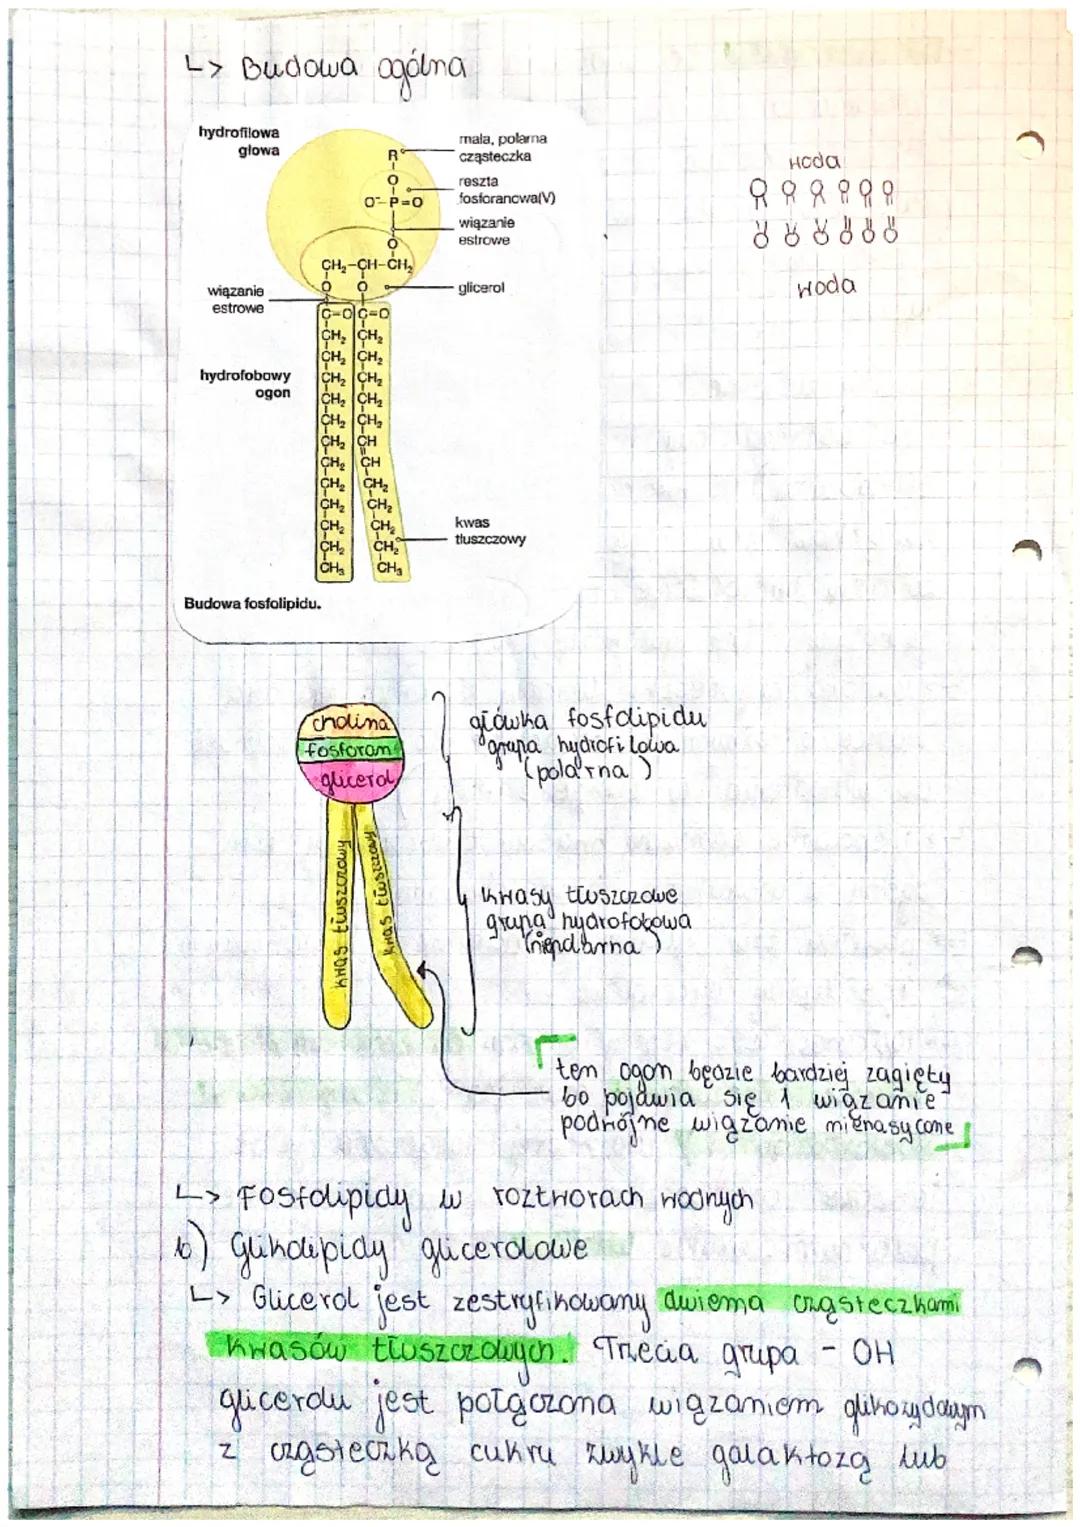 ↳ Budowa ogólna
hydrofilowa
głowa
mała, polarna
cząsteczka
reszta
fosforanowa(V)
wiązanie
estrowe
glicerol
R
O
O⁻-P=O
O
CH₂-CH-CH₂
O O
wiązanie
estrowe
C=O C=O
CH₂ CH₂
CH₂ CH₂
hydrofobowy
ogon
CH₂ CH₂
CH₂ CH₂
CH₂ CH₂
CH₂ CH
CH₂ CH
CH₂ CH₂
CH₂ CH₂
CH₂ CH₂
CH₂ CH₂
CH₃ CH₃
kwas
tłuszczowy
Budowa fosfolipidu.
woda
woda
cholina
fosforan
glicerol
kwas tłuszczowy
kwas tłuszczowy
główka fosfolipidu
grupa hydrofilowa
(polarna)
kwasy tłuszczowe
grupa hydrofobowa
(niepolarna)
ten ogon będzie bardziej zagięty
bo pojawia się 1 wiązanie
podwójne wiązanie nienasycone
↳ Fosfolipidy w roztworach wodnych
b) Glikolipidy glicerolowe
↳ Glicerol jest zestryfikowany dwiema cząsteczkami
kwasów tłuszczowych. Trzecia grupa - OH
glicerolu jest połączona wiązaniem glikozydowym
z cząsteczką cukru zwykle galaktozą lub